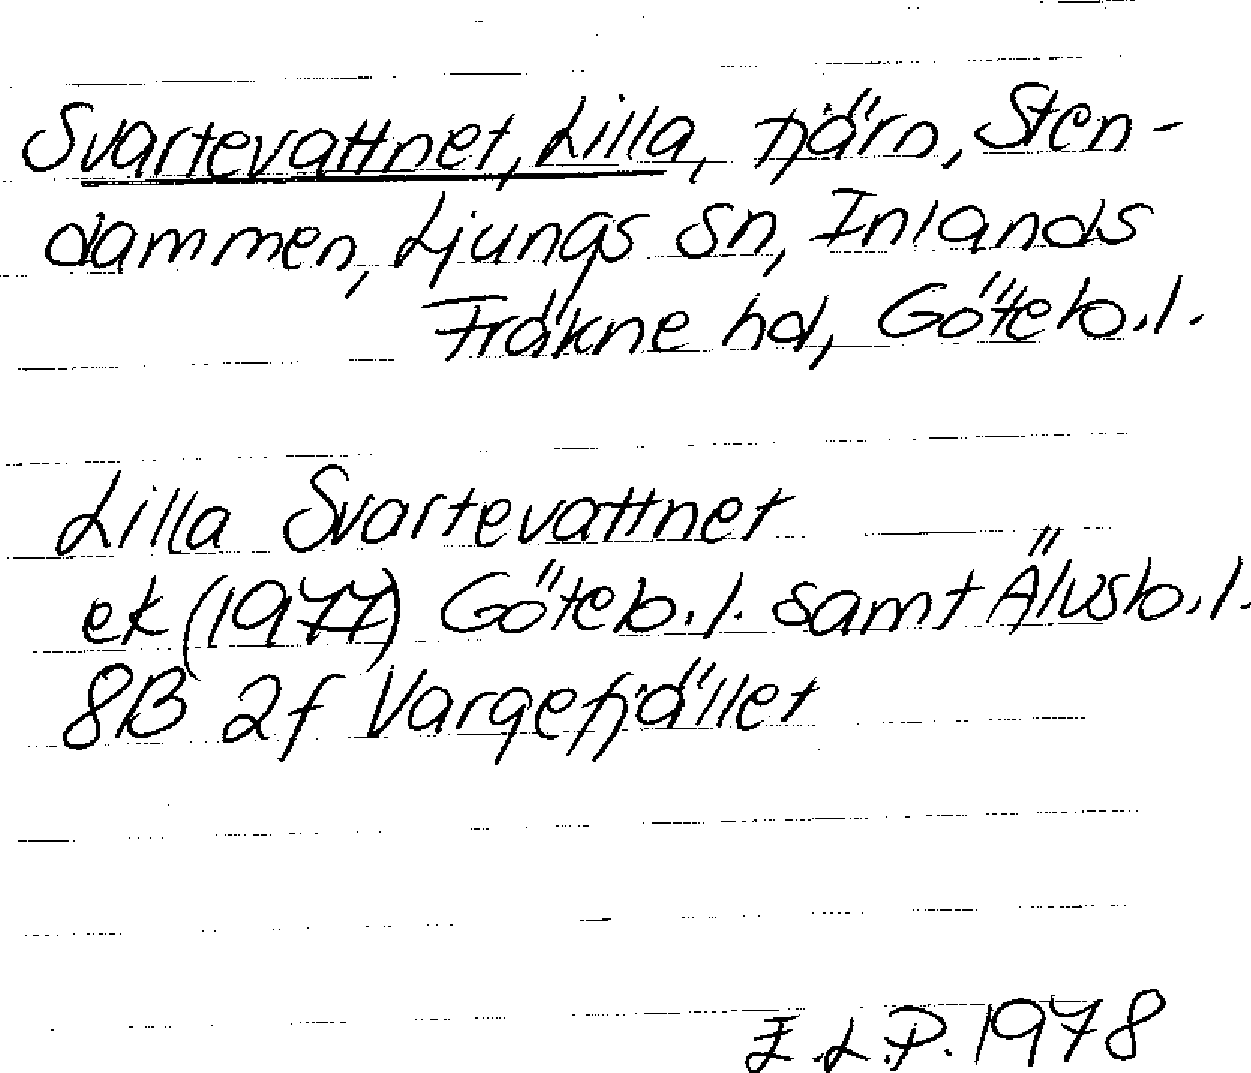 Svartevattnet, Lilla, tjärn, Sten-
dammen, Ljungs sn, Inlands
Fräkne hd, Göteb.l.
Lilla Svartevattnet
ek (1977) Göteb.l. samt Älvsb.l.
8B 2f Vargefjället
E.L.P. 1978